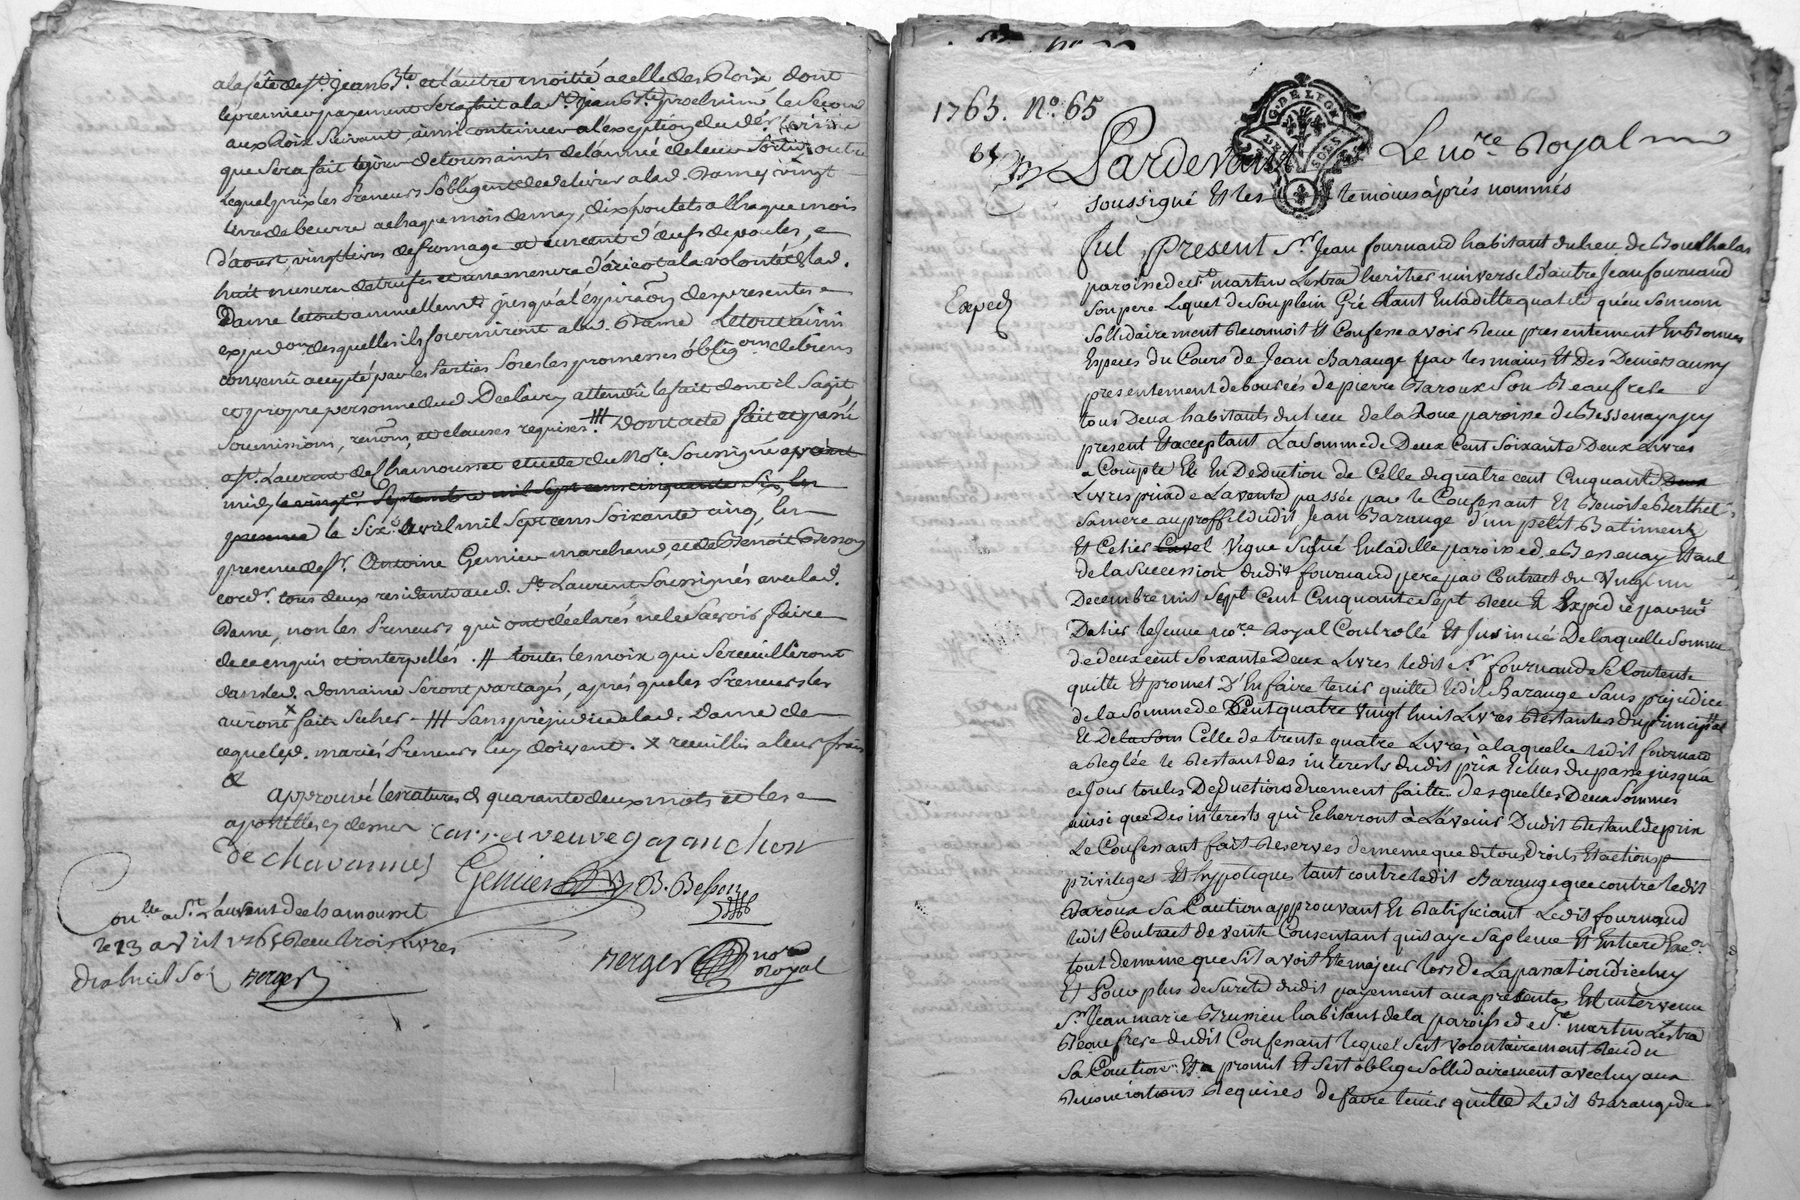 a la fête de st. jean Bte. et l'autre moitié a celle des Rois dont
le premier payement sera fait a la st. jean Bte. prochaine le second
aux Rois suivant, ainsi continuer a l'exception du der. terme
que sera fait le jour de toussaints de l'année de leur sortie, outre
lequel prix les Preneurs s'obligent de delivrer a lad. Dame vingt
livres de beurre a chaque mois de may, dix poulets a chaque mois
d'aoust, vingt livres de fromage et un cent d'œufs de poules, e
huit mesures de trufes et une mesure d'aricot a la volonté de lad.
Dame le tout annuellement jusqu'a l'expiraon. des presentes e
expedon. desquelles ils fourniront a lad. Dame Le tout ainsi
convenu accepté par les Parties sous les promesses obligons. de biens
et propre personne dud. Delaury attendû le fait dont il s'agit
soumissions, renons. et clauses requises. Dont acte fait et passé
a st. Laurent de Chamousset etude du Nore. soussigné avant
midy le vingte. Septembre mil sept cens cinquante six, en
presence le sixe. avril mil sept cens soixante cinq, en
presence de sr. Antoine Genieu marchand, et de Benoit Besson
cordr. tous deux residants aud. St. Laurent soussignés avec lad.
Dame, non les Preneurs qui ont déclarés ne le savoir faire
de ce enquis et interpellés. # toutes les noix qui se reuilliront
dans led. Domaine seront partagés, aprés que les Preneurs les
auront x fait secher - ||| sans prejudice a lad. Dame de
ce que led. mariés Preneurs luy doivent. x reuillis a leur frais
&
approuvé les ratures de quarante deux mots et les e
apostilles cy dessus
veuve gazanchon
de chavannes
Genieu B. Besson
Conlle. a St. Laurent de chamousset
le 13 avril 1765 Receu trois Livres
Berger
Berger nore Royal
1765. No. 65
G. DE LYON
SOLS
Pardevant Le nore. Royal
soussigné Et les temoins après nommés
Exped
Fut Present Sr. Jean fournand habitant du lieu de Boulhalas
paroisse de st. martin Lestra heritier universel d'autre Jean fournand
son pere Lequel de son plein Gré Etant En la ditte qualité qu'en son nom
sollidairement Reconnoit Et Confesse avoir Receu presentement En Bonnes
Especes du Cours de Jean Barange par les mains Et Des Deniers aussy
presentement deboursés de pierre Baroux son Beaufrere
tous Deux habitants du Lieu de la Roue paroisse de Bessenay icy
present Et acceptant La somme de Deux Cent soixante Deux Livres
a Compte Et En Deduction de Celle de quatre cent Cinquante
Livres prix de La vente passée par le Confessant Et Benoite Berthet
sa mere au proffit dudit Jean Barange d'un petit Batiment
Et Celier Vigne situé En la ditte paroisse de Bessenay Etant
de la succession dudit fournand pere par Contract du Vingt un
Decembre mil sept Cent Cinquante sept Receu Et Expedié par me.
Datier le Jeune nore. Royal Controllé Et Insinué De laquelle somme
de deux cent soixante Deux Livres ledit sr. fournand se Contente
quitte Et promet D'En faire tenir quitte ledit Barange sans prejudice
de la somme de Cent quatre vingt huit Livres Restantes du principal
Et De Celle de trente quatre Livres à laquelle ledit fournand
a Reglée le Restant des interests dudit prix Echus du passe jusqu'a
ce Jour toutes Deductions duement faitte. Desquelles Deux sommes
ainsi que Des interests qui Echerront à L'avenir Dudit Restant de prix
Le Confessant fait Reserves de meme que de tous Droits Et actions
privileges Et hypoteques tant contre ledit Barange que contre ledit
Baroux sa Caution approuvant Et Ratificiant Ledit fournand
ledit Contract de vente Consentant qu'il aye sa pleine Et Entiere Exeon.
tout de meme que s'il avoit Eté majeur lors de La passation d'iceluy
Et Pour plus de sureté dudit payement aux presentes Est intervenu
sr. Jean marie Brunieu habitant de la paroisse de st. martin Lestra
Beaufrere dudit Confessant lequel s'est volontairement Rendu
sa Caution Et a promit Et s'est oblige sollidairement avec luy aux
Renonciations Requises De faire tenir quitte Ledit Barange de